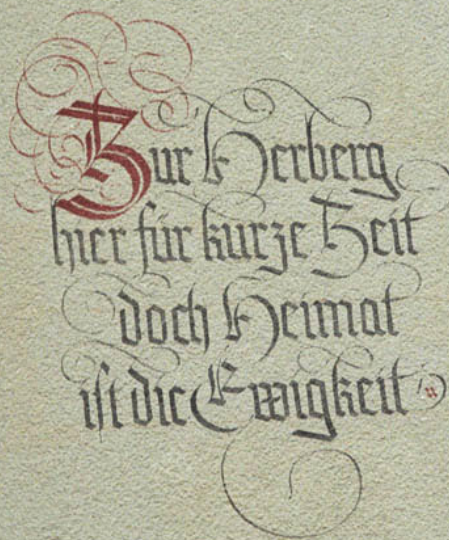 Zur Herberg
hier für kurze Zeit
doch Heimat
ist die Ewigkeit